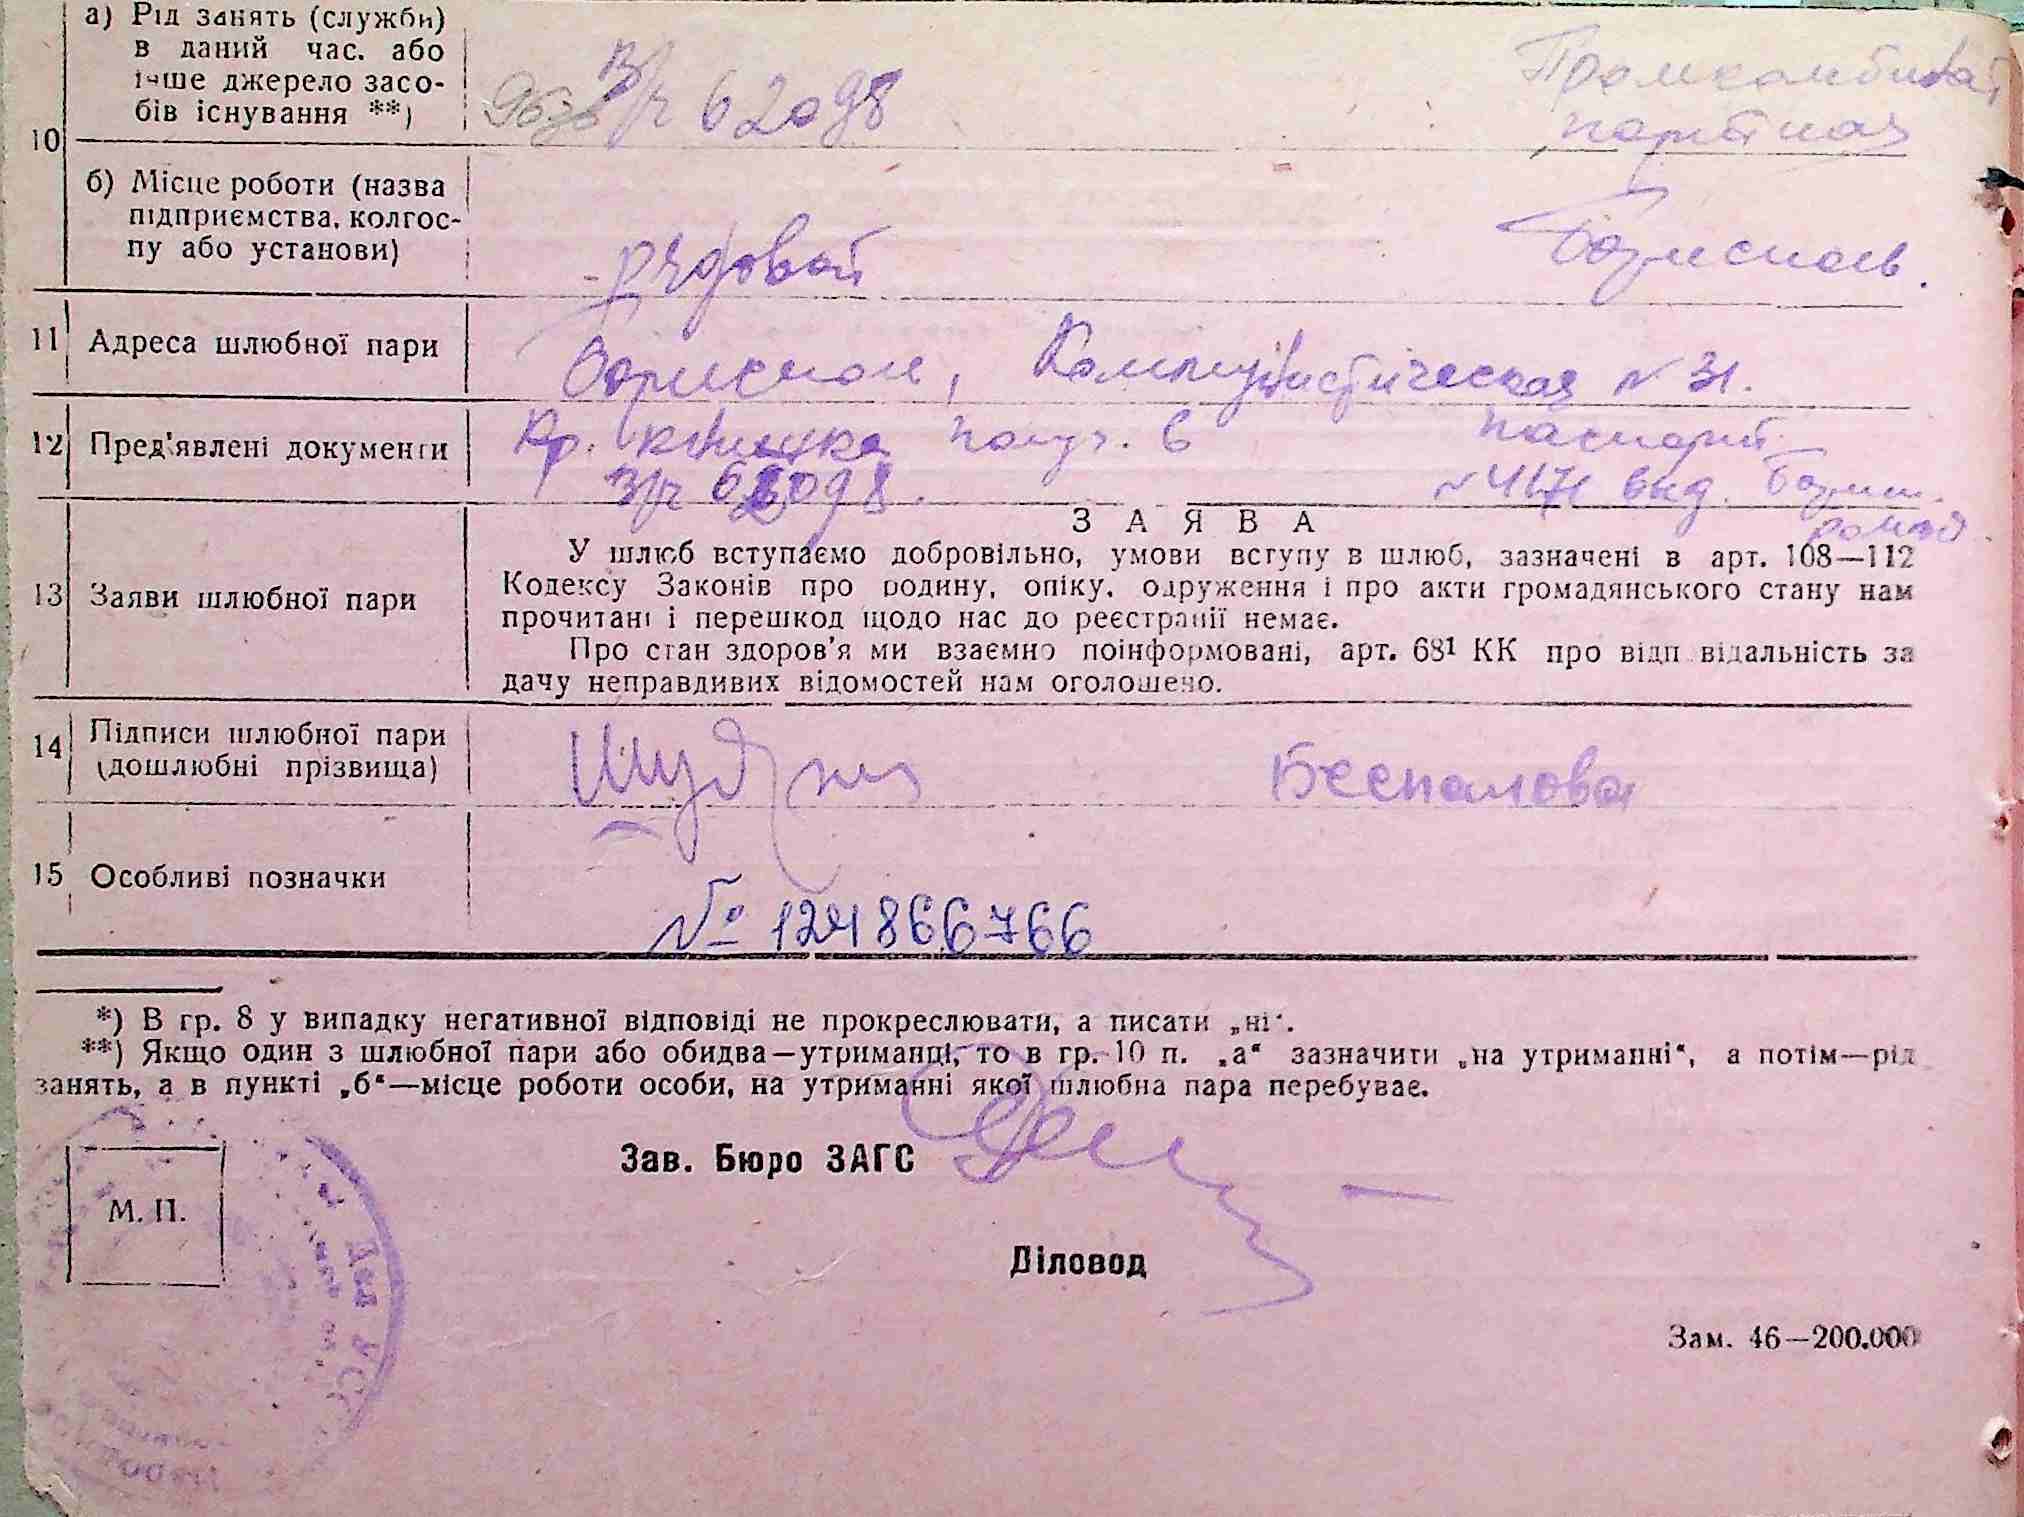 а) Рід занять (служби)
в даний час. або
інше джерело засо-
бів існування **)
в/ч 62098
Промкомбинат
10
б) Місце роботи (назва
підприємства, колгос-
пу або установи)
рядовой
Борисполь.
11 Адреса шлюбної пари
Борисполь, Коммунистическая № 31.
12 Пред'явлені документи
Кр. книжка
в/ч 62098.
паспорт
выд.
13 Заяви шлюбної пари
ЗАЯВА
У шлюб вступаємо добровільно, умови вступу в шлюб, зазначені в арт. 108—112
Кодексу Законів про родину, опіку, одруження і про акти громадянського стану нам
прочитані і перешкод щодо нас до реєстрації немає.
Про стан здоров'я ми взаємно поінформовані, арт. 68¹ КК про відп відальність за
дачу неправдивих відомостей нам оголошено.
14 Підписи шлюбної пари
(дошлюбні прізвища)
Беспалова
15 Особливі позначки
№ 124866766
*) В гр. 8 у випадку негативної відповіді не прокреслювати, а писати „ні“.
**) Якщо один з шлюбної пари або обидва—утриманці, то в гр. 10 п. „а“ зазначити „на утриманні“, а потім—рід
занять, а в пункті „б“—місце роботи особи, на утриманні якої шлюбна пара перебуває.
Зав. Бюро ЗАГС
М. П.
Діловод
Зам. 46—200.000